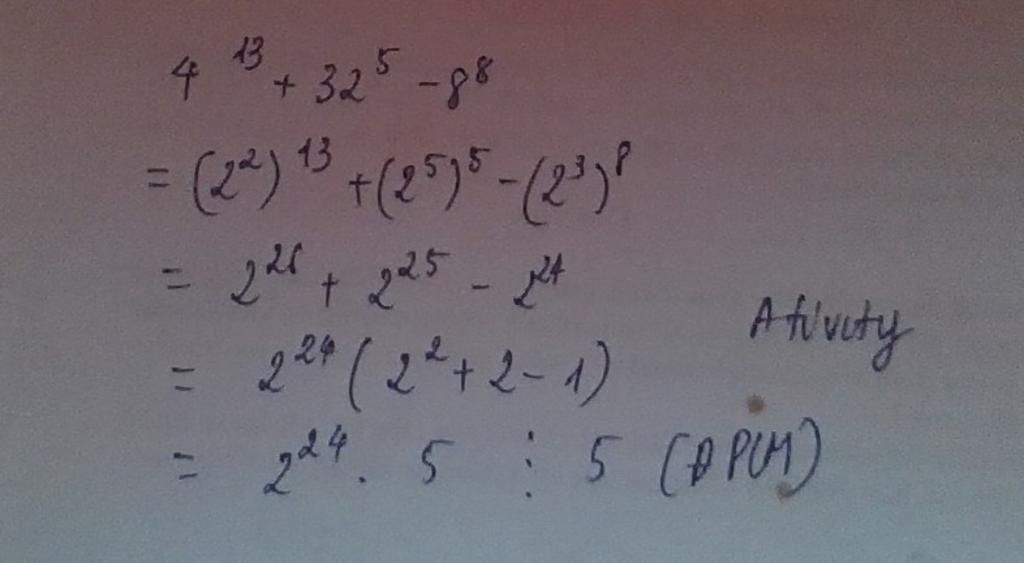 4¹³ + 32⁵ - 8⁸
= (2²)¹³ + (2⁵)⁵ - (2³)⁸
= 2²⁶ + 2²⁵ - 2²⁴
= 2²⁴ (2² + 2 - 1)
= 2²⁴ . 5 ⋮ 5 (ĐPCM)